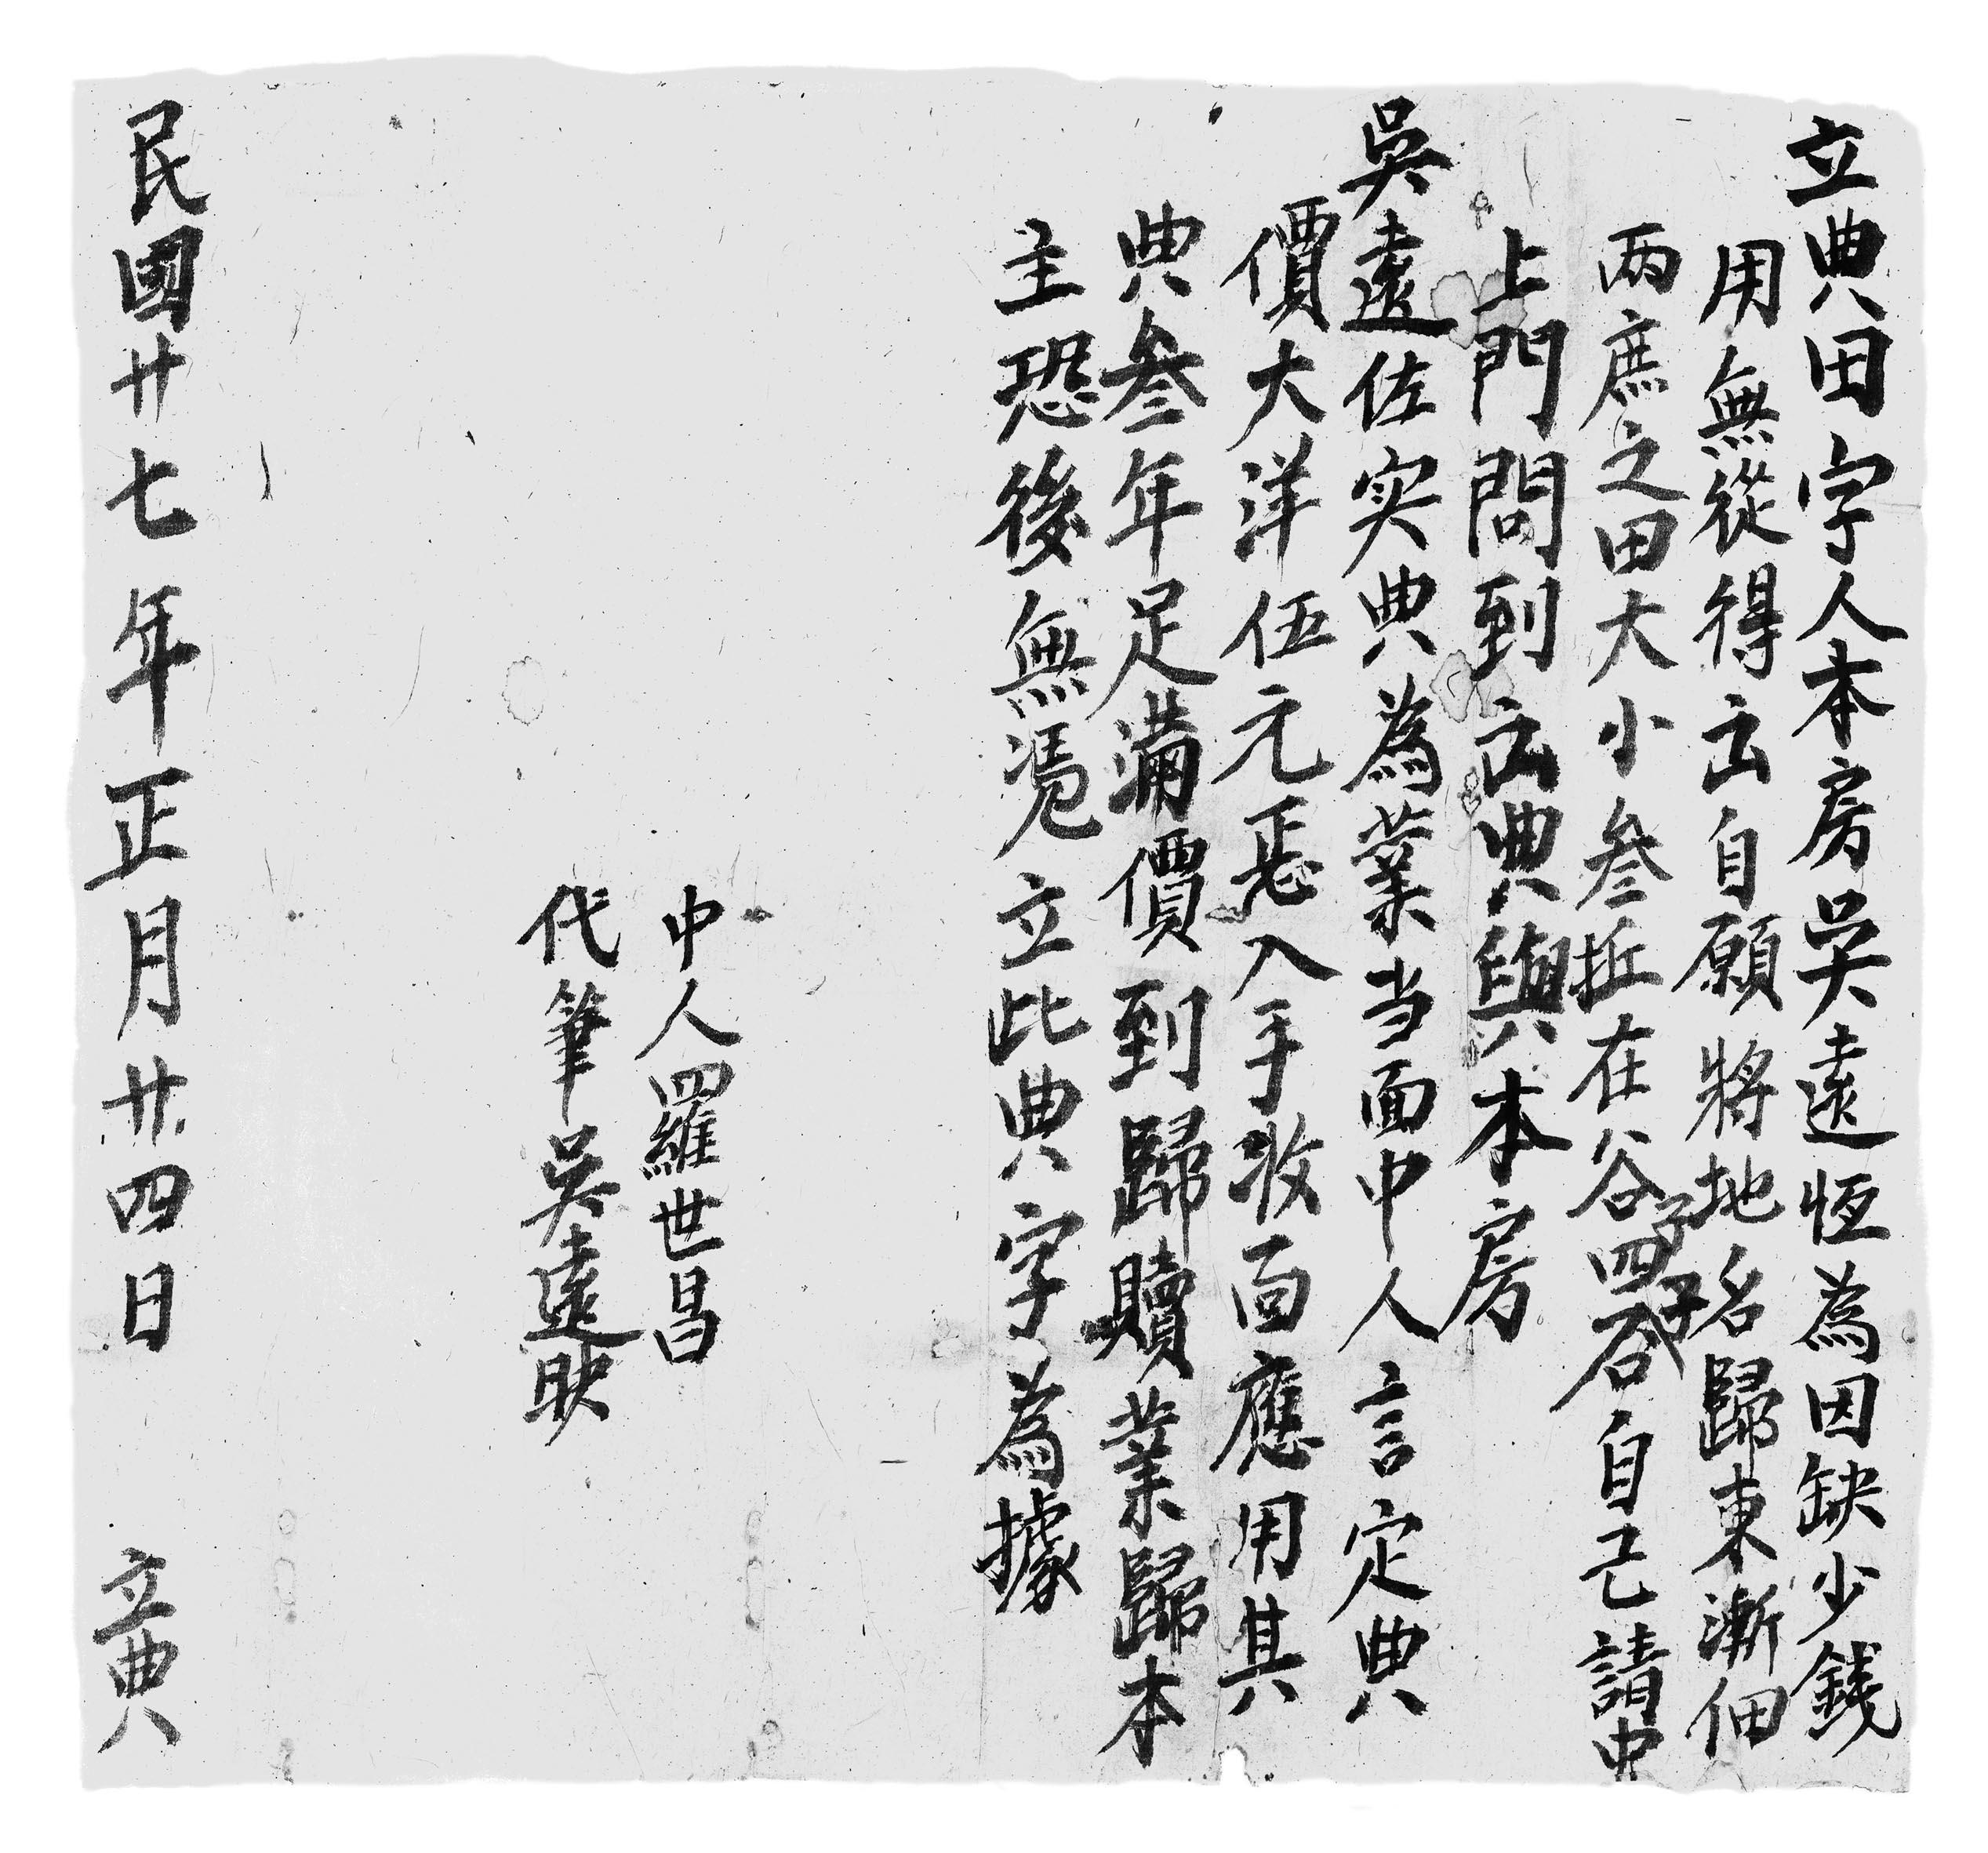 立典田字人本房吳遠恆為因缺少錢
用無從得出自願將地名歸東漸佃
兩庶之田大小叁坵在谷四石自己請中
上門問到出典與本房
吳遠佐实典為業当面中人言定典
價大洋伍元悉入手收面應用其
典叁年足滿價到歸贖業歸本
主恐後無凴立此典字為據
中人羅世昌
代筆吳遠映
民國廿七年正月廿四日 立典